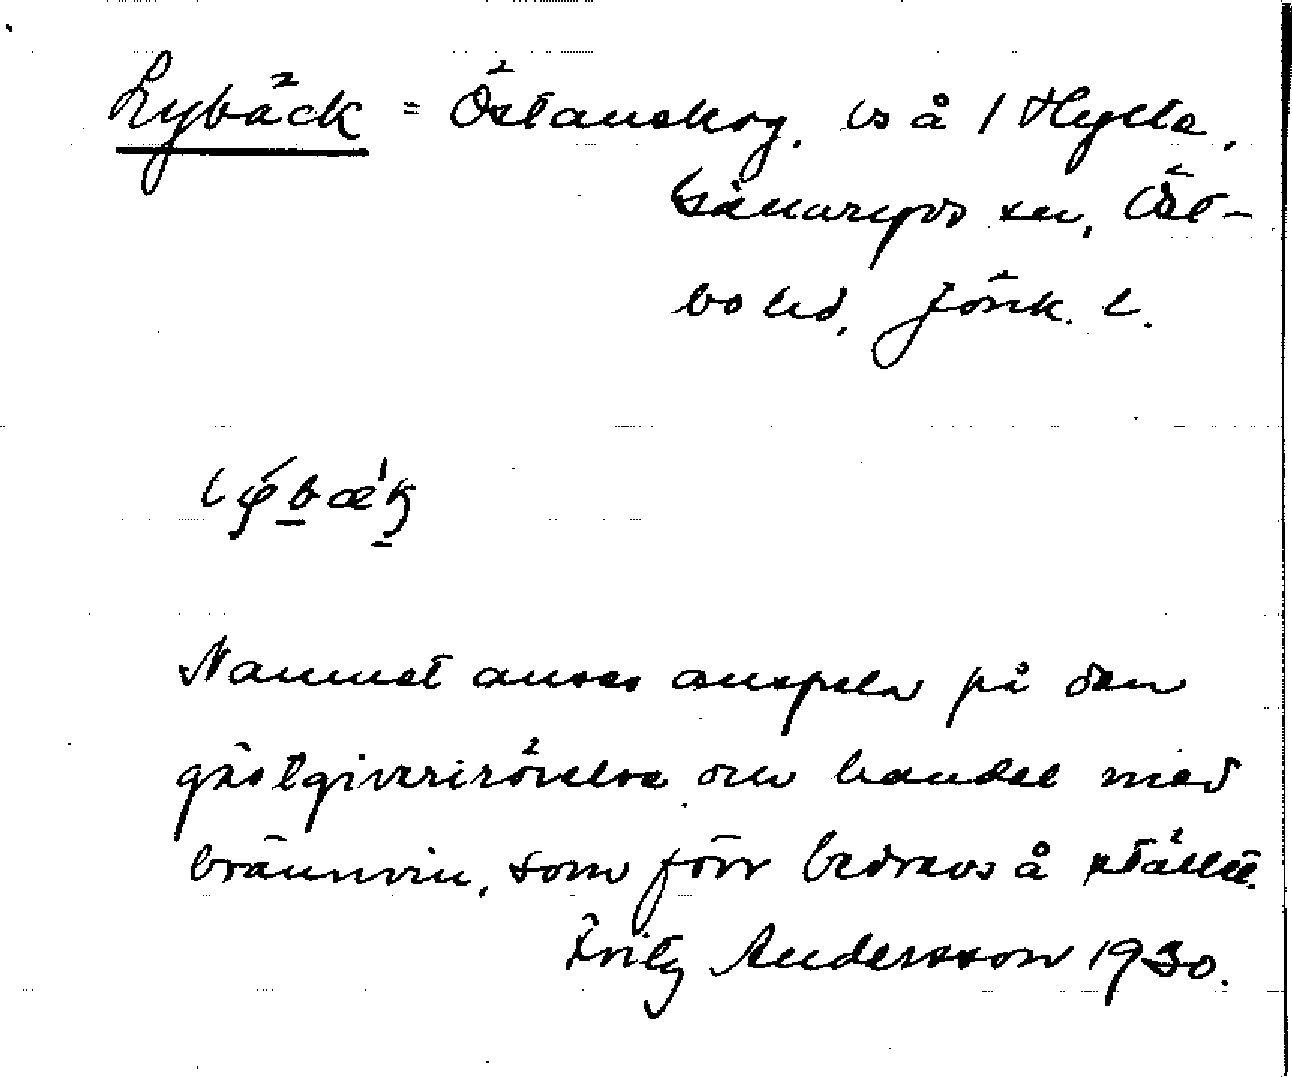 Lybäck = Östanskog, ls å 1 Hylte,
Känareyds sn, Öst-
bo hd, Jönk. l.
Namnet anses anspela på den
gästgiverirörelse och handel med
brännvin, som förr bedrevs å stället.
Fritz Andersson 1930.